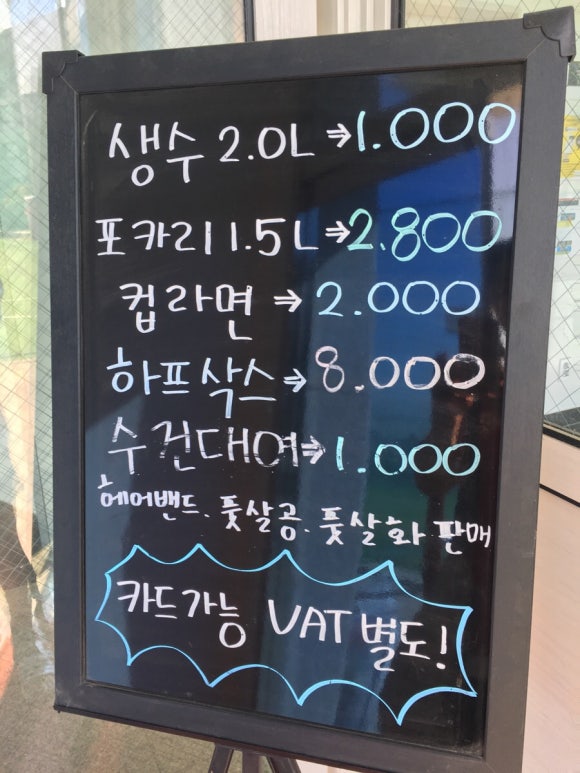 생수 2.0L ⇒ 1.000
포카리 1.5L ⇒ 2.800
컵라면 ⇒ 2.000
하프삭스 ⇒ 8.000
수건대여 ⇒ 1.000
헤어밴드. 풋살공. 풋살화 판매
카드가능 VAT 별도!